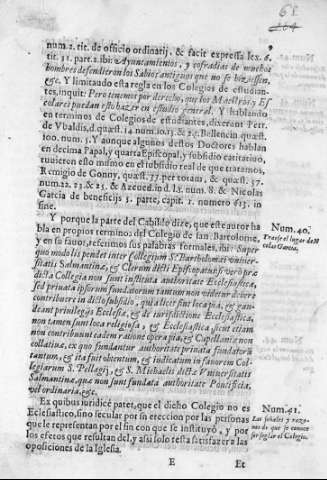 61
164
num.2. tit. de officio ordinatij, & facit expressa lex. 6.
tit. 31. part.2. ibi: Ayuntamientos, y cofradias de muchos
hombres defendieron los Sabios antiguos que no se hiziessen,
&c. Y limitando esta regla en los Colegios de estudian-
tes, inquit: Pero tenemos por derecho, que los Maestros, y Es
colares puedan esto hazer en estudio general. Y hablando
en terminos de Colegios de estudiantes, dixeran Petr.
de Vbaldis, d. quæst. 14. num. 10. 15. & 26. Bellencin. quæst.
100. num. 5. Y aunque algunos destos Doctores hablan
en decima Papal, y quarta Episcopal, y subsidio caritatiuo,
tuuieron esto mismo en el subsidio real de que tratamos,
Remigio de Gonny, quæst. 77. per totam, & quæst. 37.
num. 22. 23. & 25. & Azeued. in d. l. x. num. 8. & Nicolas
Garcia de beneficijs 3. parte, capit. 1. numero 613. in
fine.
Y porque la parte del Cabildo dize, que este autor ha
bla en propios termino, del Colegio de San Bartolome,
y en su fauor, referemos sus palabras formales, ibi: Super
quo modo lis pendet inter Collegium S. Bartholomæi vniuer-
sitatis Salmantinæ, & Clerum dicti Episcopatus, & vero præ
dicta Collegia non sunt instituta authoritate Ecclesiastica,
sed priuata ipsorum fundatorum tantum non videntur deuere
contribuere in dicto subsidio, quia licet sint loca pia, & gau-
deant priuilegijs Ecclesiæ, & de iurisdictione Ecclesiastica,
non tamen sunt loca religiosa, & Ecclesiastica sicut etiam
non contribuunt eadem ratione opera pia, & Capellaniæ non
collatiuæ, ex quo fundantur authoritate priuata fundatoris
tantum, & ita fuit obtentum, & indicatum in fauorem Col-
legiorum S. Pelagij, & S. Michaelis dictæ Vniuersitatis
Salmantinæ, quæ non sunt fundata authoritate Pontificia,
vel ordinaria, &c.
Ex quibus iuridicè patet, que el dicho Colegio no es
Eclesiastico, sino secular por su ereccion por las personas
que le representan por el fin con que se instituyò, y por
los efetos que resultan del, y assi solo resta satisfazer a las
oposiciones de la Iglesia.
E
Et
Num. 40.
Traese el lugar de Ni
colas Garcia.
Num. 41.
Las señales y razo-
nes de que se conoce
ser seglar el Colegio.